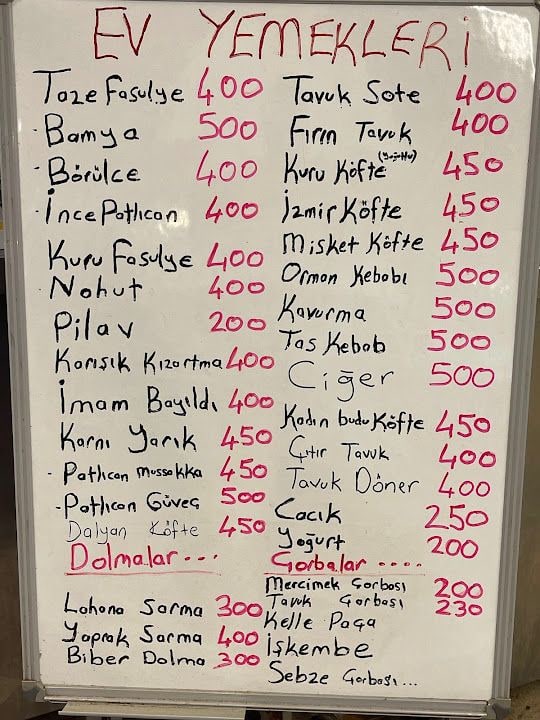 EV YEMEKLERİ
Taze Fasulye 400
· Bamya 500
· Börülce 400
· İnce Patlıcan 400
Kuru Fasulye 400
Nohut 400
Pilav 200
Karışık Kızartma 400
İmam Bayıldı 400
Karnı Yarık 450
· Patlıcan mussakka 450
· Patlıcan Güveç 500
Dalyan Köfte 450
Dolmalar ...
Lahana Sarma 300
Yaprak Sarma 400
Biber Dolma 300
Tavuk Sote 400
Fırın Tavuk 400
Kuru Köfte 450
İzmir Köfte 450
Misket Köfte 450
Orman Kebabı 500
Kavurma 500
Tas Kebab 500
Ciğer 500
Kadın budu Köfte 450
Çıtır Tavuk 400
Tavuk Döner 400
Cacık 250
Yoğurt 200
Çorbalar ....
Mercimek Çorbası 200
Tavuk Çorbası 230
Kelle Paça
İşkembe
Sebze Çorbası...